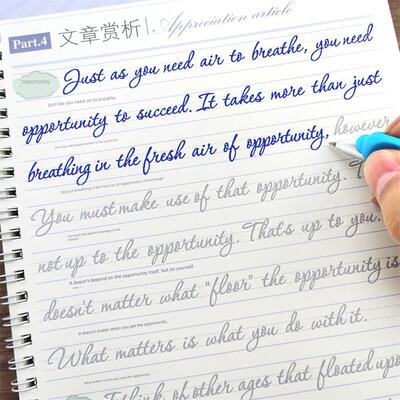 Part.4 文章赏析 Appreciation article
Opportunity
Just as you need air to breathe, you need
just like you need air to breathe,
opportunity to succeed. It takes more than just
breathing in the fresh air of opportunity, however
But just breathing in the fresh air of opportunity is not enough.
You must make use of that opportunity.
not up to the opportunity. That's up to you.
It doesn't depend on the opportunity itself, but on yourself.
doesn't matter what "floor" the opportunity is
It doesn't matter when you get the opportunity,
What matters is what you do with it.
I think of other ages that floated upo